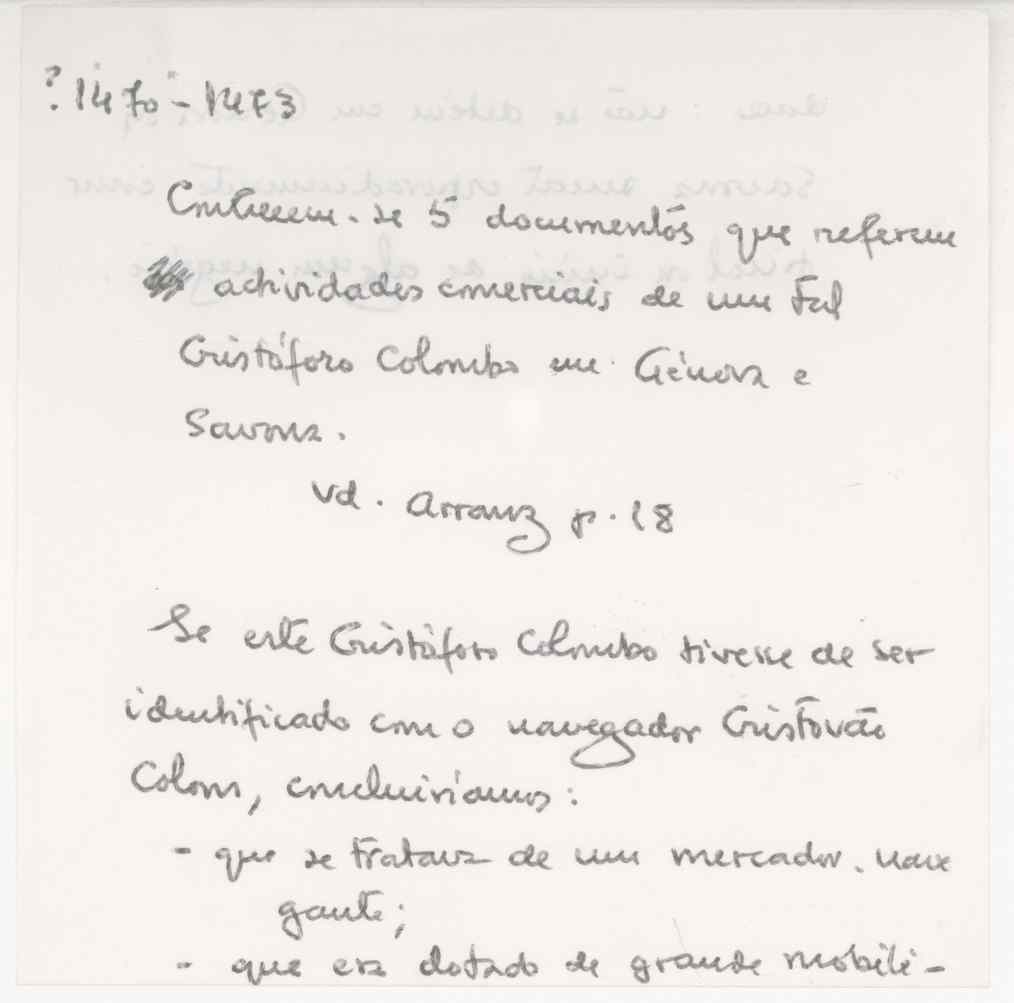 ? 1470 - 1473
Conhecem-se 5 documentos que referem
actividades comerciais de um tal
Cristóforo Colombo em Génova e
Savona.
vd. Arranz p. 18
Se este Cristóforo Colombo tivesse de ser
identificado com o navegador Cristóvão
Colom, concluiríamos:
- que se tratava de um mercador-nave
gante;
- que era dotado de grande mobili-